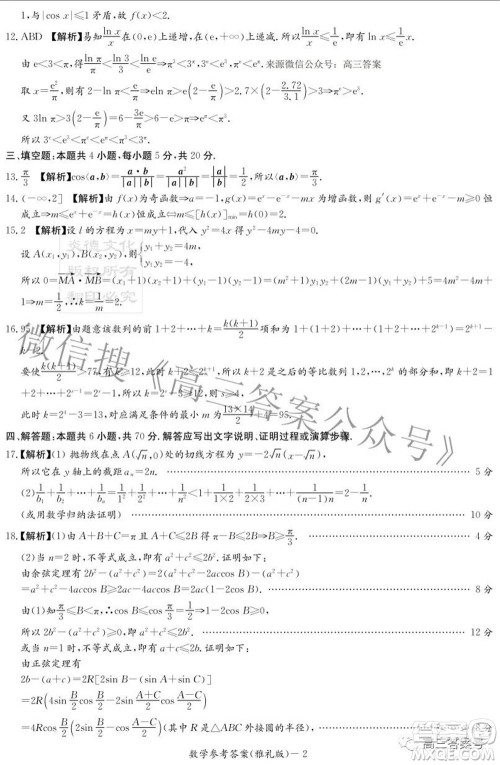 1,与|cos x|≤1矛盾,故 f(x)<2.
12. ABD 【解析】易知 ln x/x 在(0,e)上递增,在(e,+∞)上递减.所以 ln x/x ≤ 1/e,即有 ln x ≤ 1/e x.
由 e<3<π,得 ln π/π < ln 3/3 < ln e/e ⇒π³<3^π,3^e<e³,π^e<e^π. 来源微信公众号:高三答案
取 x=e²/π,则有 2-ln π<e/π⇒eln π>e(2-e/π)>2.7×(2-2.72/3.1)>3⇒π^e>e³.
又 3ln π>3(2-e/π)>π⇒π³>e^π.
所以 3^e<e³<π^e<e^π<π³<3^π.
三、填空题:本题共 4 小题,每小题 5 分,共 20 分.
13. π/3 【解析】cos⟨a,b⟩=a·b/|a||b|=a²/|a||b|=|a|/|b|=1/2,所以⟨a,b⟩=π/3.
14. (-∞,2] 【解析】由 f(x)为奇函数⇒a=-1,g(x)=e^x-e^-x-mx 为增函数,则 g′(x)=e^x+e^-x-m≥0 恒
成立⇒m≤e^x+e^-x=h(x)恒成立⇔m≤[h(x)]min=h(0)=2.
15. 2 【解析】设 l 的方程为 x=my+1,代入 y²=4x 得 y²-4my-4=0.
设 A(x₁,y₁),B(x₂,y₂),则{y₁+y₂=4m, y₁y₂=-4,
所以 0=MA·MB=(x₁+1)(x₂+1)+(y₁-1)(y₂-1)=(m²+1)y₁y₂+(2m-1)(y₁+y₂)+5=4m²-4m+
1⇒m=1/2,∴k=1/m=2.
16. 95 【解析】由题意该数列的前 1+2+…+k=k(k+1)/2 项和为 1+(1+2)+…+(1+2+…+2^(k-1))=2^(k+1)
要使 k(k+1)/2>77,有 k≥12,此时 k+2<2^(k+1),所以 k+2 是之后的等比数列 1,2,…,2^k 的部分和,即 k+2=1
此时 k=2⁴-3=13,对应满足的最小 m 为 13×14/2+4=95.
四、解答题:本题共 6 小题,共 70 分.解答应写出文字说明、证明过程或演算步骤.
17.【解析】(1) 抛物线在点 A(√n,n)处的切线方程为 y=-2√n(x-√n),
所以它在 y 轴上的截距 aₙ=2n. 5 分
(或用数学归纳法证明) 10 分
18.【解析】(1)由 A+B+C=π 且 A+C≤2B 得 π-B≤2B⇒B≥π/3. 4 分
(2)当 n=2 时,不等式成立,即有 a²+c²≤2b².证明如下:
由余弦定理有 2b²-(a²+c²)=2(a²+c²-2accos B)-(a²+c²)
=a²+c²-4accos B≥2ac-4accos B=2ac(1-2cos B). 8 分
由(1)知 π/3≤B<π,∴cos B≤1/2⇒1-2cos B≥0,
所以 2b²-(a²+c²)≥0,即 a²+c²≤2b². 12 分
或当 n=1 时,不等式成立,即有 a+c≤2b.证明如下:
由正弦定理有
2b-(a+c)=2R[2sin B-(sin A+sin C)]
=2R(4sin B/2 cos B/2-2sin (A+C)/2 cos (A-C)/2)
=4Rcos B/2(2sin B/2-cos (A-C)/2)(其中 R 是△ABC 外接圆的半径),
数学参考答案(雅礼版)-2
炎德文化
版权所有
翻印必究
微信搜《高三答案公众号》
高三答案号